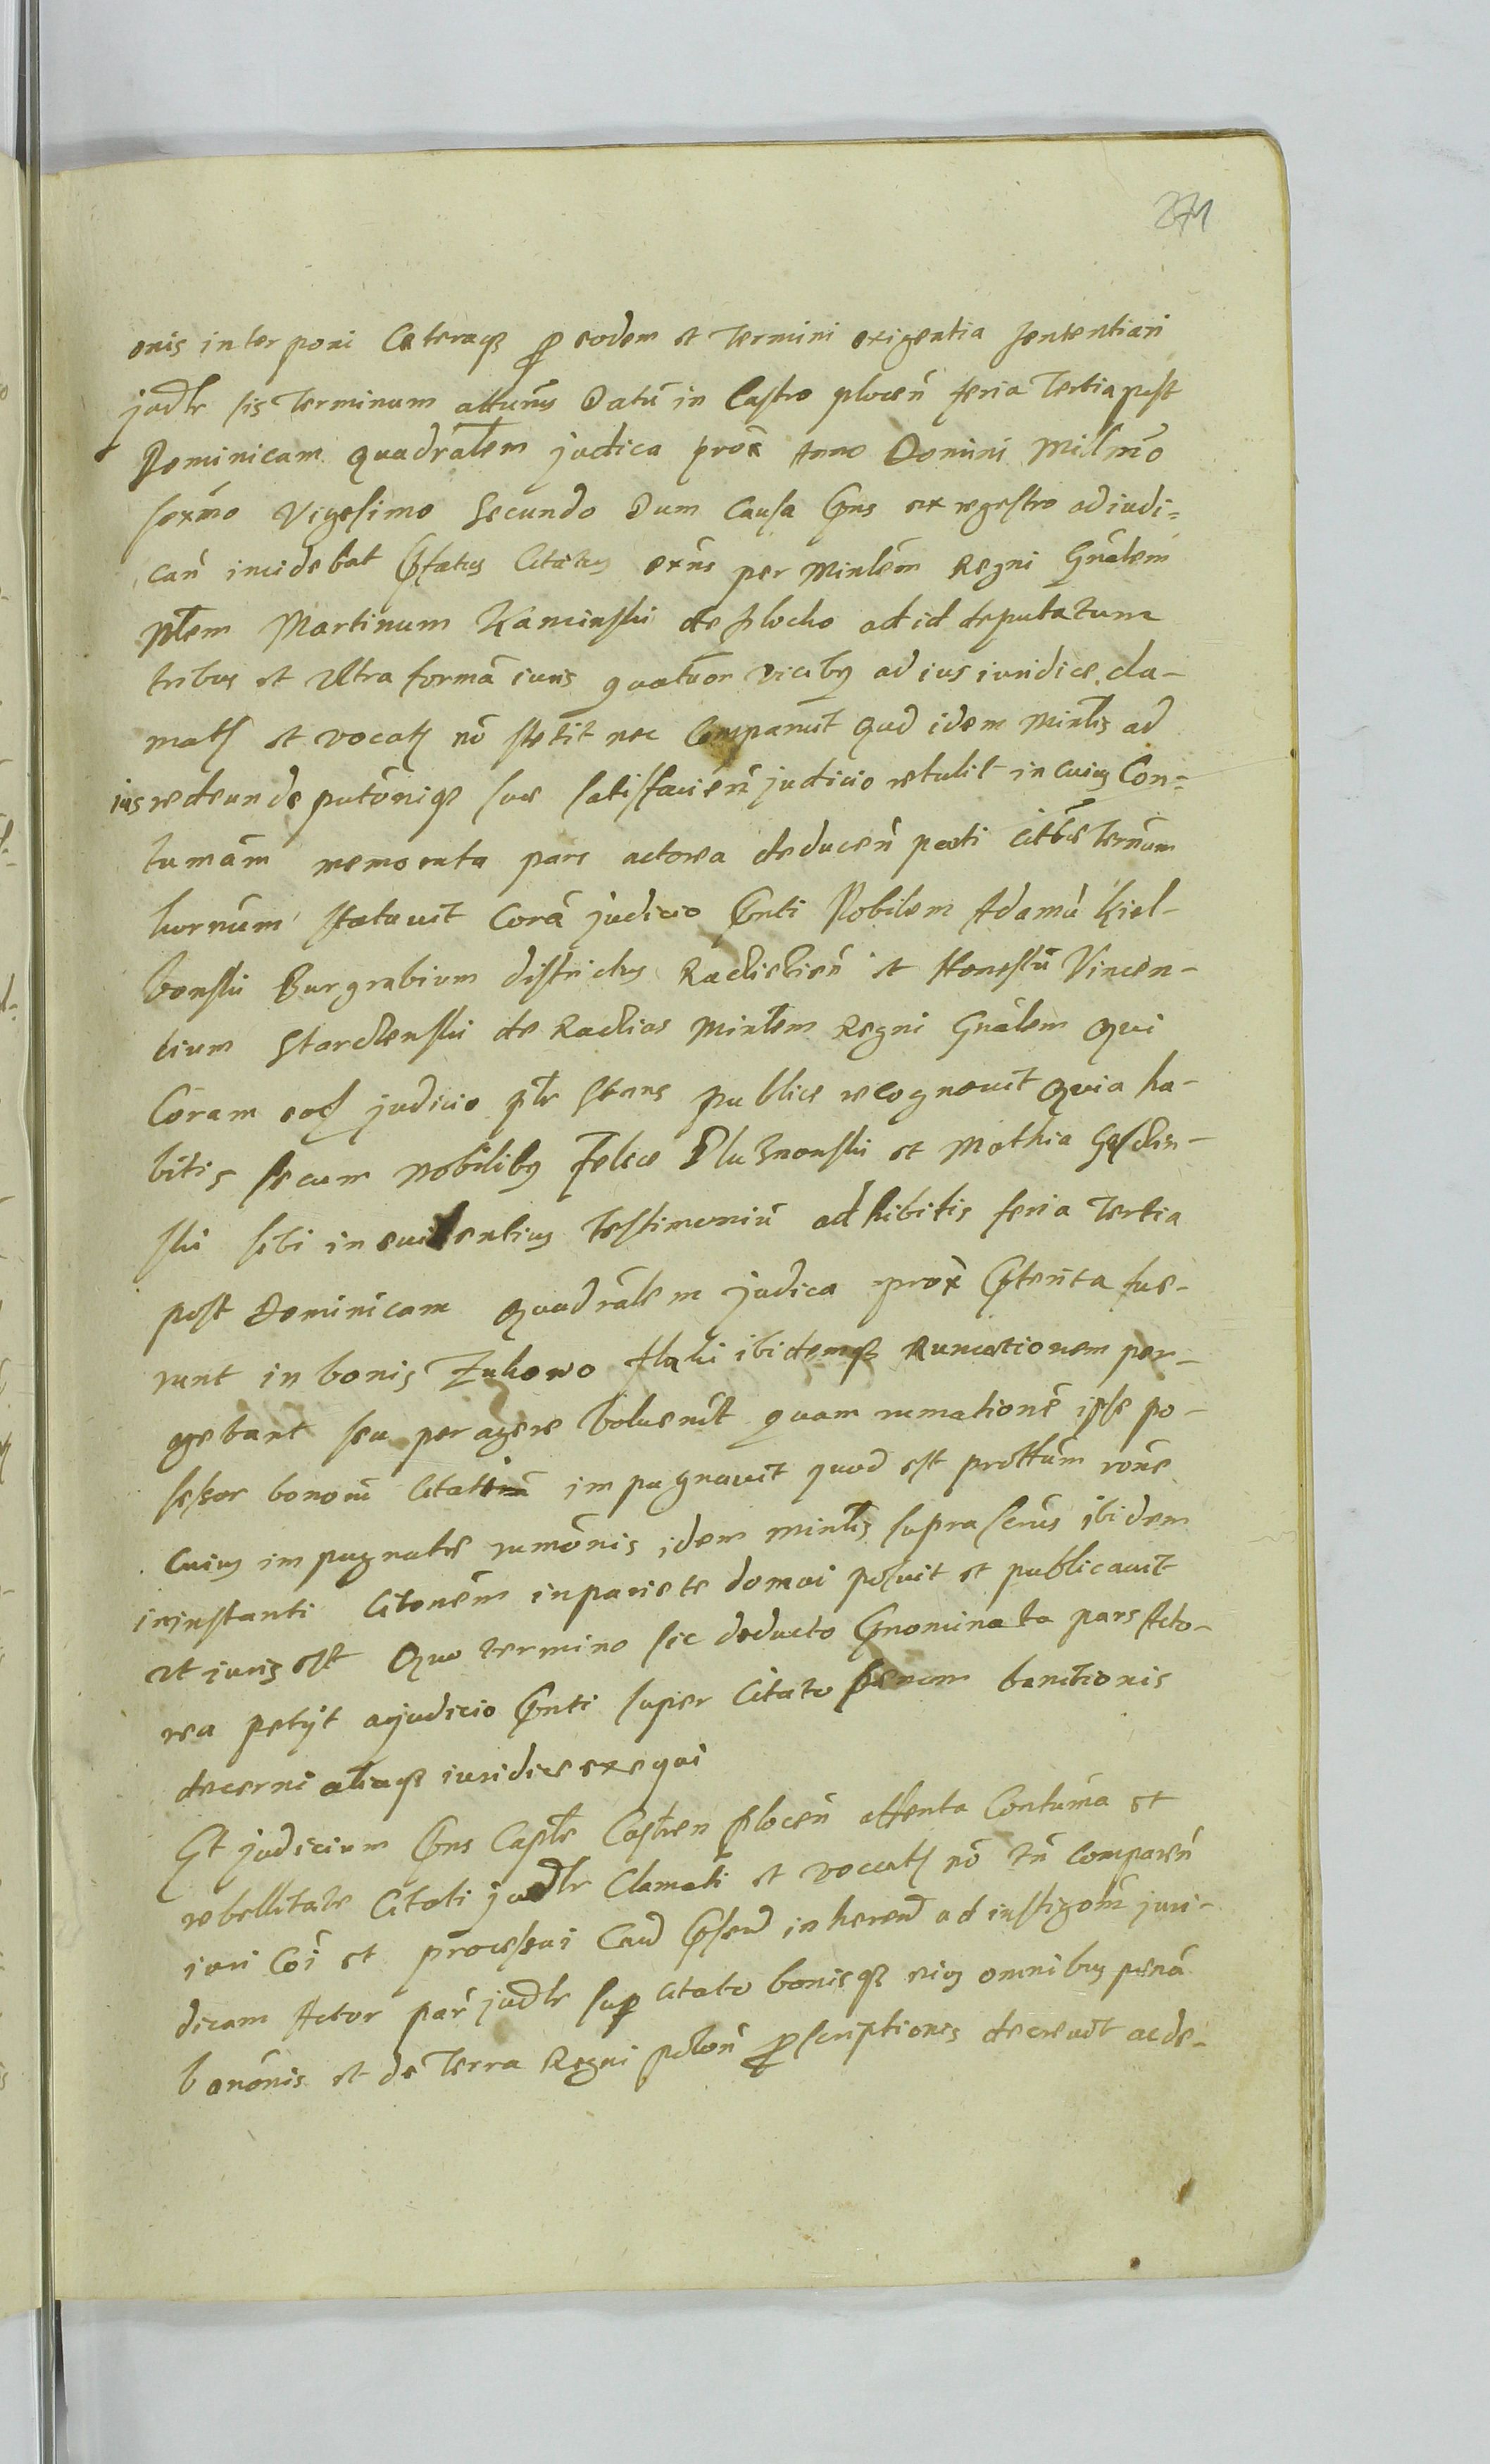 271
onis interponi Cateraqz p eodem et Termini exigentia sententiari
judlr sis Terminum atturus Datū in Castro plocen̄ feria Tertia post
Dominicam quadralem judica prox Anno Domini Millmo
sexmo Vigesimo Secundo Dum Causa Pns ex regestro adiudi=
can̄ incidebat Pfatus Citatus exns per Minlem Regni Gnalem
Martinum Kaminski de Plocko ad id deputatum
tribus et Ultra formā iuris quatuor vicibus ad ius iuridice cla-
mats et vocats nō stetit nec Comparuit Qud idem Minlis ad
ius redeunde putōniqz sue satisfacien̄ judicio retulit in cuius Con-
tumām memorata pars actorea deducen̄ parti Ternūm
hornūm statuit Corā judicio Pnti Nobilem Adamū Kiel-
bonski Burgrabium districtus et Honestū Vincen-
tium de Minlem Regni Gnalem Qui
Coram eod judicio plr Stans publice recognovit Quia ha-
bitis secum Nobilibus Felice et Mathia
ski sibi in evidentius Testimoniū adhibitis feria Tertia
post Dominicam Quadralem judica prox Ptenta fue-
runt in bonis Zukowo ibidemqz Rumationem per-
agebant seu peragere Voluerūt quam rumationē ipse po-
ssessor bonorū impugnavit quod est prottūm rone
Cuius impugnate rumōnis idem minlis suprascrus ibidem
ininstanti Citonēm in pariete domui posuit et publicavit
Ut iuris est Quo termino sic deducto Pnominata pars Acto-
rea petijt a judicio Pnti super Citato penam banitionis
decerni aliaqz iuridice exequi
Et judicium Pns Caple Castren plocen̄ attenta Contumā et
rebellitate Citati judlr Clamati et vocats nō tn̄ comparen̄
iuri Coi et processui Caud Psend inherend ad instigom juri-
dicam Actor par judlr sup Citato bonisqz eius omnibus penā
banōnis et de Terra Regni polon̄ pscriptionis decrevit ac de-